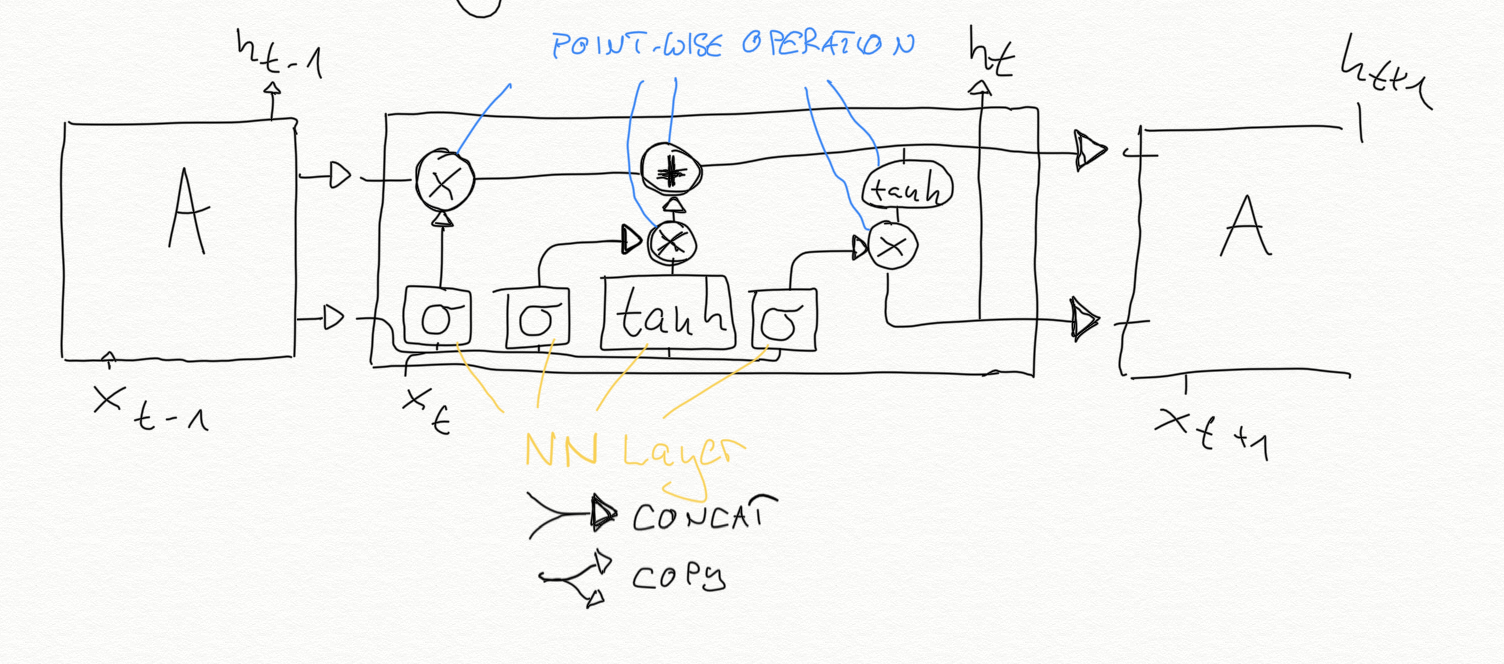 h_{t-1}
POINT-WISE OPERATION
h_t
h_{t+1}
A
×
+
tanh
A
×
×
σ
σ
tanh
σ
x_{t-1}
x_t
x_{t+1}
NN Layer
CONCAT
COPY